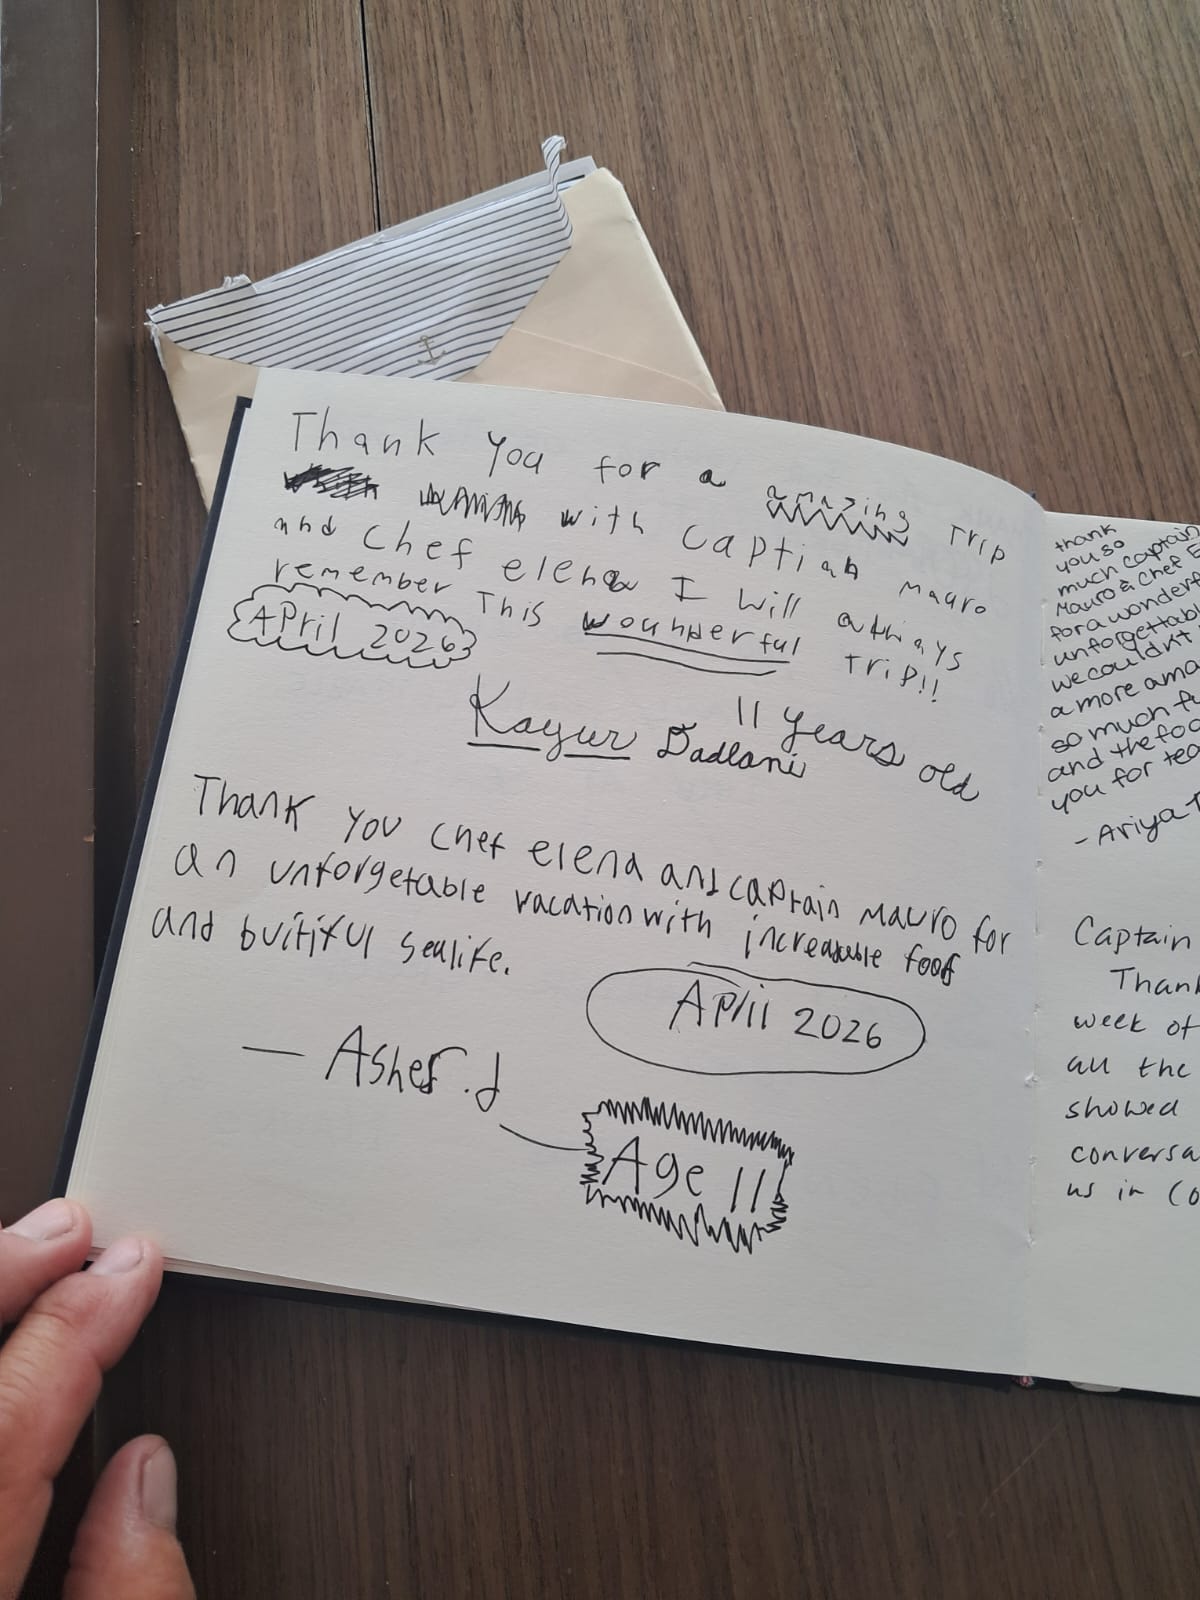 Thank you for a amazing Trip
with captian Mauro
and chef elena I will always
remember This wounderful Trip!!
April 2026
11 years old
Kayur Dadlani
Thank you chef elena and captain Mauro for
an unforgetable vacation with increadable food
and buitiful sealife.
April 2026
— Asher.d
Age 11
thank
you so
much captain
Mauro & chef E
for a wonderf
unforgettabl
we couldn't
a more ama
so much fu
and the foo
you for tea
- Ariya T
Captain
Thank
week of
all the
showed
conversa
us in Co